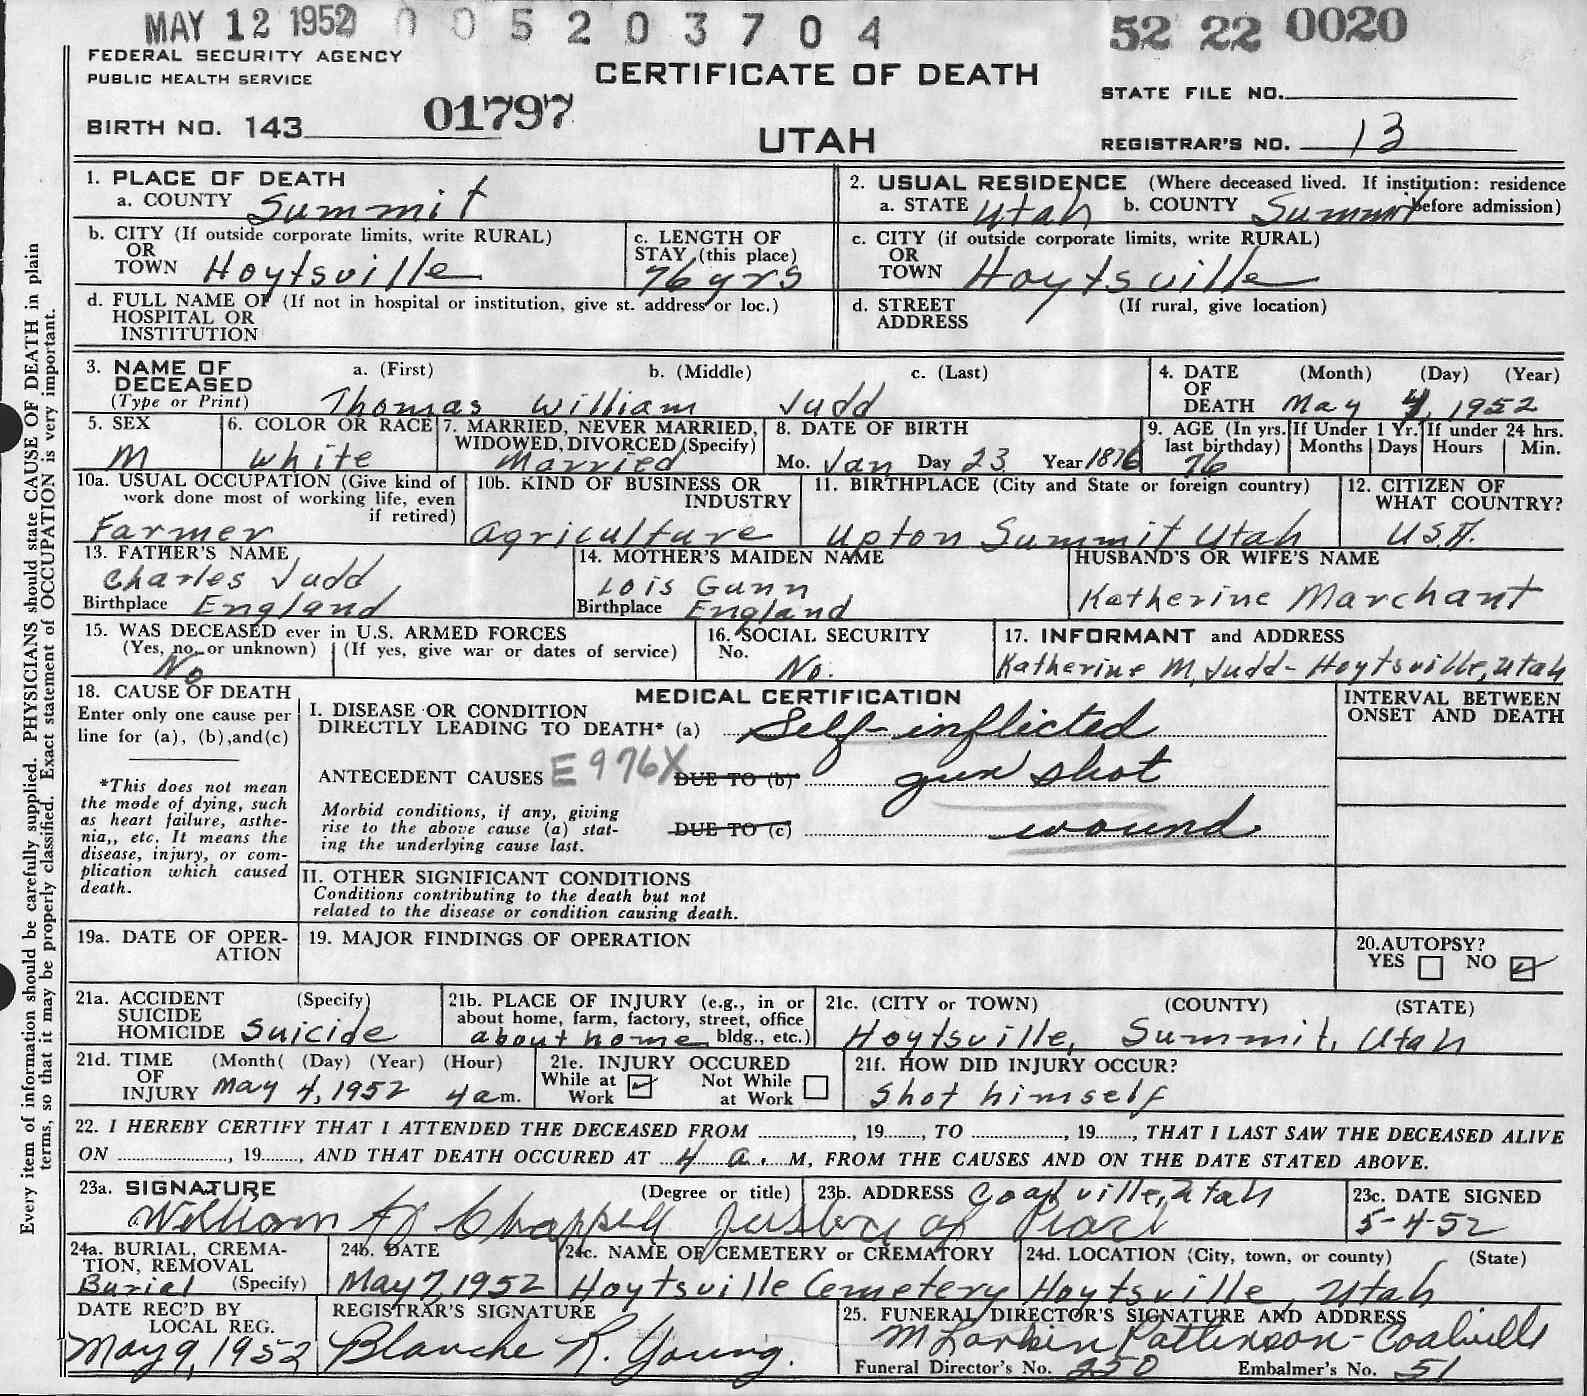 MAY 12 1952 0 0 5 2 0 3 7 0 4 52 22 0020
FEDERAL SECURITY AGENCY
PUBLIC HEALTH SERVICE
CERTIFICATE OF DEATH
STATE FILE NO.
BIRTH NO. 143 01797
UTAH
REGISTRAR'S NO. 13
Every item of information should be carefully supplied. PHYSICIANS should state CAUSE OF DEATH in plain
terms, so that it may be properly classified. Exact statement of OCCUPATION is very important.
1. PLACE OF DEATH
a. COUNTY Summit
2. USUAL RESIDENCE (Where deceased lived. If institution: residence
a. STATE Utah b. COUNTY Summit before admission)
b. CITY (If outside corporate limits, write RURAL)
OR
TOWN Hoytsville
c. LENGTH OF
STAY (this place)
76 yrs
c. CITY (if outside corporate limits, write RURAL)
OR
TOWN Hoytsville
d. FULL NAME OF (If not in hospital or institution, give st. address or loc.)
HOSPITAL OR
INSTITUTION
d. STREET (If rural, give location)
ADDRESS
3. NAME OF a. (First) b. (Middle) c. (Last)
DECEASED
(Type or Print) Thomas William Judd
4. DATE (Month) (Day) (Year)
OF
DEATH May 4, 1952
5. SEX
M
6. COLOR OR RACE
White
7. MARRIED, NEVER MARRIED,
WIDOWED, DIVORCED (Specify)
Married
8. DATE OF BIRTH
Mo. Jan Day 23 Year 1876
9. AGE (In yrs.
last birthday)
76
If Under 1 Yr.
Months Days
If under 24 hrs.
Hours Min.
10a. USUAL OCCUPATION (Give kind of
work done most of working life, even
if retired)
Farmer
10b. KIND OF BUSINESS OR
INDUSTRY
Agriculture
11. BIRTHPLACE (City and State or foreign country)
Upton Summit Utah
12. CITIZEN OF
WHAT COUNTRY?
U.S.A.
13. FATHER'S NAME
Charles Judd
Birthplace England
14. MOTHER'S MAIDEN NAME
Lois Gunn
Birthplace England
HUSBAND'S OR WIFE'S NAME
Katherine Marchant
15. WAS DECEASED ever in U.S. ARMED FORCES
(Yes, no, or unknown) (If yes, give war or dates of service)
No
16. SOCIAL SECURITY
No.
No.
17. INFORMANT and ADDRESS
Katherine M. Judd - Hoytsville, Utah
18. CAUSE OF DEATH
Enter only one cause per
line for (a), (b), and (c)
*This does not mean
the mode of dying, such
as heart failure, asthe-
nia,, etc. It means the
disease, injury, or com-
plication which caused
death.
MEDICAL CERTIFICATION
I. DISEASE OR CONDITION
DIRECTLY LEADING TO DEATH* (a) Self-inflicted
ANTECEDENT CAUSES E976X DUE TO (b) gun shot
Morbid conditions, if any, giving
rise to the above cause (a) stat-
ing the underlying cause last.
DUE TO (c) wound
INTERVAL BETWEEN
ONSET AND DEATH
II. OTHER SIGNIFICANT CONDITIONS
Conditions contributing to the death but not
related to the disease or condition causing death.
19a. DATE OF OPER-
ATION
19. MAJOR FINDINGS OF OPERATION
20. AUTOPSY?
YES NO
21a. ACCIDENT (Specify)
SUICIDE
HOMICIDE Suicide
21b. PLACE OF INJURY (e.g., in or
about home, farm, factory, street, office
about home bldg., etc.)
21c. (CITY or TOWN) (COUNTY) (STATE)
Hoytsville, Summit, Utah
21d. TIME (Month( (Day) (Year) (Hour)
OF
INJURY May 4, 1952 4 am.
21e. INJURY OCCURED
While at Work
Not While at Work
21f. HOW DID INJURY OCCUR?
Shot himself
22. I HEREBY CERTIFY THAT I ATTENDED THE DECEASED FROM ..............., 19......., TO ..............., 19......., THAT I LAST SAW THE DECEASED ALIVE
ON ..............., 19......., AND THAT DEATH OCCURED AT 4 a. M, FROM THE CAUSES AND ON THE DATE STATED ABOVE.
23a. SIGNATURE (Degree or title)
William Chappell Justice of Peace
23b. ADDRESS Coalville, Utah
23c. DATE SIGNED
5-4-52
24a. BURIAL, CREMA-
TION, REMOVAL
Burial (Specify)
24b. DATE
May 7, 1952
24c. NAME OF CEMETERY or CREMATORY
Hoytsville Cemetery
24d. LOCATION (City, town, or county) (State)
Hoytsville, Utah
DATE REC'D BY
LOCAL REG.
May 9, 1952
REGISTRAR'S SIGNATURE
Blanche R. Young.
25. FUNERAL DIRECTOR'S SIGNATURE AND ADDRESS
M Larkin Pattinson - Coalville
Funeral Director's No. 250 Embalmer's No. 51